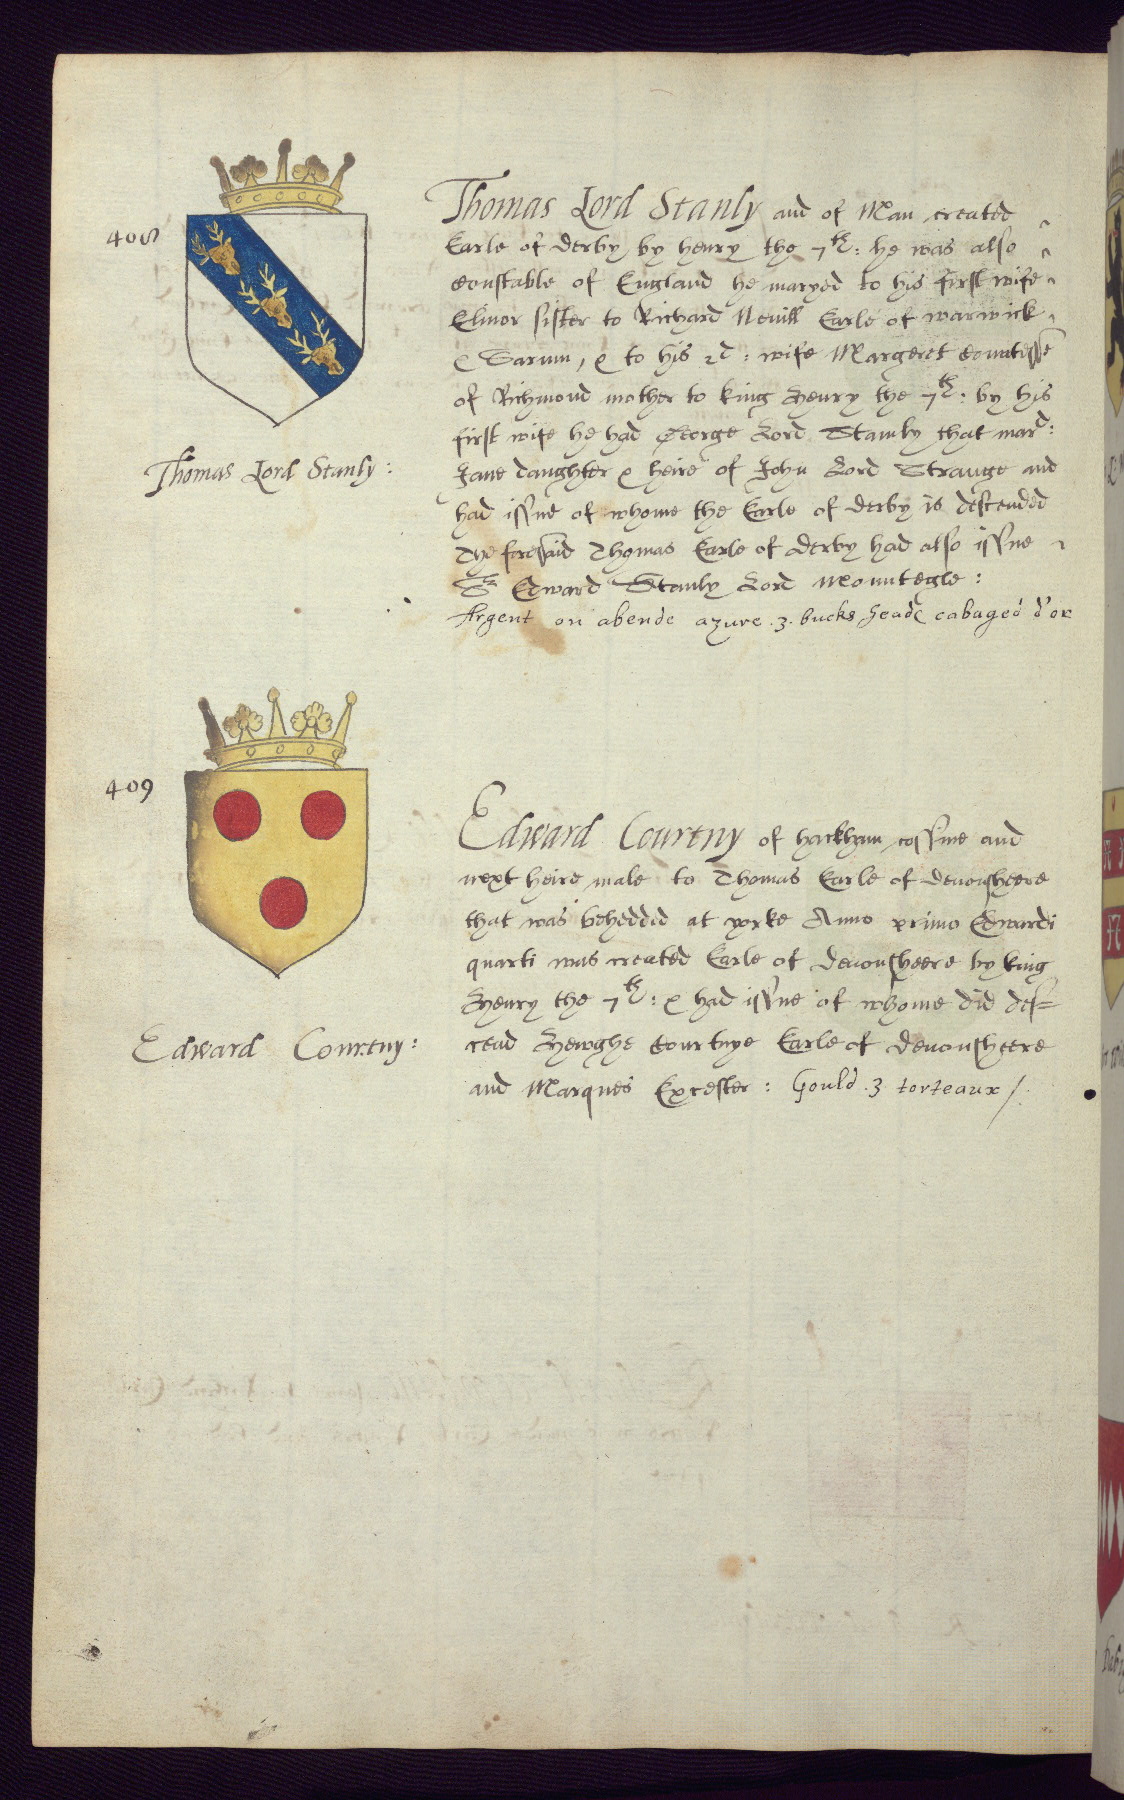 408
Thomas Lord Stanly and of Man created
Earle of Derby by henry the 7th: he was also
Constable of England he maryed to his first wife
Elinor sister to Richard Nevill Earle of warwick
& Sarum, & to his 2d: wife Margeret Countesse
of Richmond mother to king Henry the 7th: by his
first wife he had George Lord Stanly that mard:
Thomas Lord Stanly:
Jane daughter & heire of John Lord Strange and
had issue of whome the Earle of Derby is descended
The foresaid Thomas Earle of derby had also issue
Sr Edward Stanly Lord Mountegle:
Argent on abende azure .3. bucks heads cabaged d'or
409
Edward Courtny of hackham cossine and
next heire male to Thomas Earle of devonsheere
that was beheddid at yorke Anno primo Edwardi
quarti was created Earle of Devonsheere by king
Henry the 7th: & had issue of whome did des=
Edward Courtny:
cend Hewghe Courtnye Earle of Devonsheere
and Marques Excester: Gould .3 torteaux /.